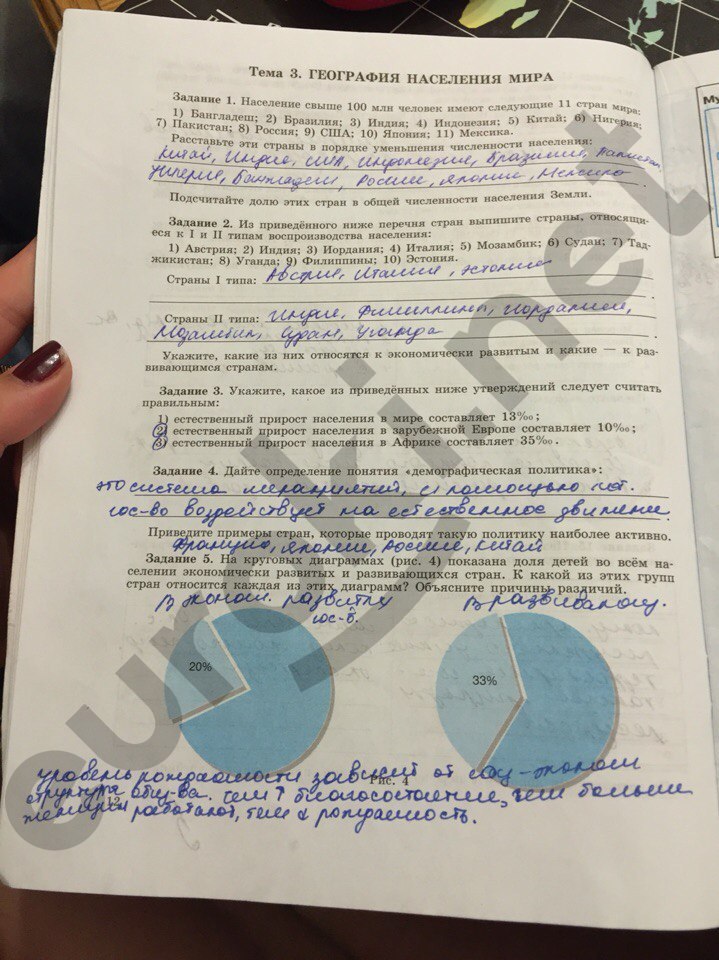 Тема 3. ГЕОГРАФИЯ НАСЕЛЕНИЯ МИРА
Задание 1. Население свыше 100 млн человек имеют следующие 11 стран мира:
1) Бангладеш; 2) Бразилия; 3) Индия; 4) Индонезия; 5) Китай; 6) Нигерия;
7) Пакистан; 8) Россия; 9) США; 10) Япония; 11) Мексика.
Расставьте эти страны в порядке уменьшения численности населения:
Китай, Индия, США, Индонезия, Бразилия, Пакистан,
Нигерия, Бангладеш, Россия, Япония, Мексика.
Подсчитайте долю этих стран в общей численности населения Земли.
Задание 2. Из приведённого ниже перечня стран выпишите страны, относящи-
еся к I и II типам воспроизводства населения:
1) Австрия; 2) Индия; 3) Иордания; 4) Италия; 5) Мозамбик; 6) Судан; 7) Тад-
жикистан; 8) Уганда; 9) Филиппины; 10) Эстония.
Страны I типа: Австрия, Италия, Эстония
Страны II типа: Индия, Филиппины, Иордания,
Мозамбик, Судан, Уганда
Укажите, какие из них относятся к экономически развитым и какие — к раз-
вивающимся странам.
Задание 3. Укажите, какое из приведённых ниже утверждений следует считать
правильным:
1) естественный прирост населения в мире составляет 13‰;
2) естественный прирост населения в зарубежной Европе составляет 10‰;
3) естественный прирост населения в Африке составляет 35‰.
Задание 4. Дайте определение понятия «демографическая политика»:
это система мероприятий, с помощью кот.
гос-во воздействует на естественное движение.
Приведите примеры стран, которые проводят такую политику наиболее активно.
Франция, Япония, Россия, Китай
Задание 5. На круговых диаграммах (рис. 4) показана доля детей во всём на-
селении экономически развитых и развивающихся стран. К какой из этих групп
стран относится каждая из этих диаграмм? Объясните причины различий.
В эконом. развитых В
гос-в.
20%
33%
Рис. 4
уровень рождаемости зависит от соц-эконом
структуры общ-ва. Чем ↑ благосостояние, чем больше
12
женщин работают, тем рождаемость.
eurokj.net